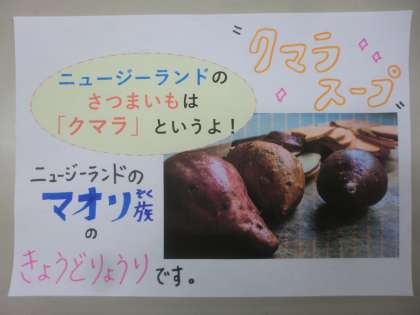 "クマラ
スープ"
ニュージーランドの
さつまいもは
「クマラ」というよ！
ニュージーランドの
マオリ族
ぞく
の
きょうどりょうりです。